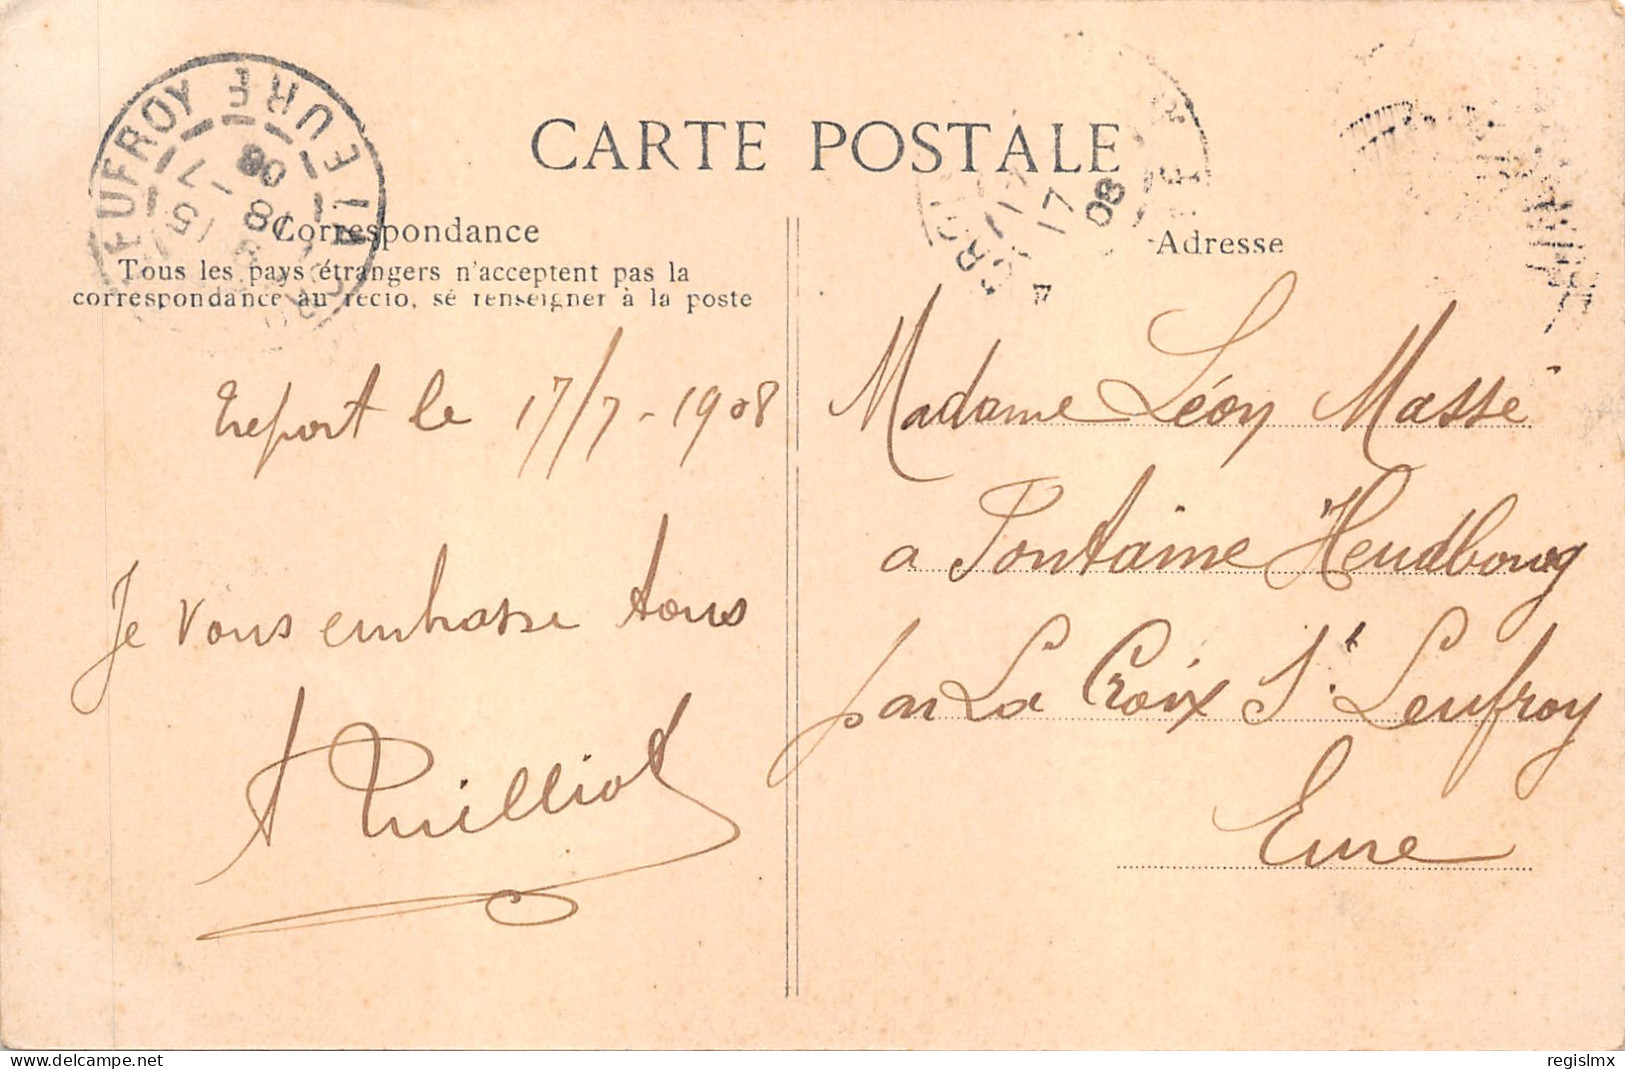 CARTE POSTALE
Correspondance
Tous les pays étrangers n'acceptent pas la
correspondance au recto, se renseigner à la poste
Adresse
UFROY EURE
15 7
18
08
17
08
Treport le 17/7-1908
Je vous embrasse tous
Madame Léon Masse
a Fontaine Heudbourg
par La Croix St Leufroy
Eure
regislmx
www.delcampe.net